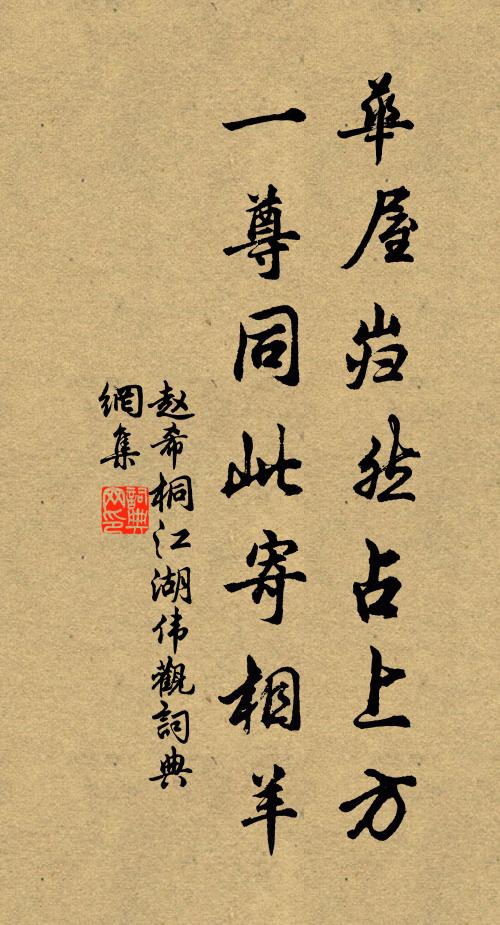 華屋岿然占上方
一尊同此寄相羊
赵希桐江湖伟觀詞典
網集
詞典
网印